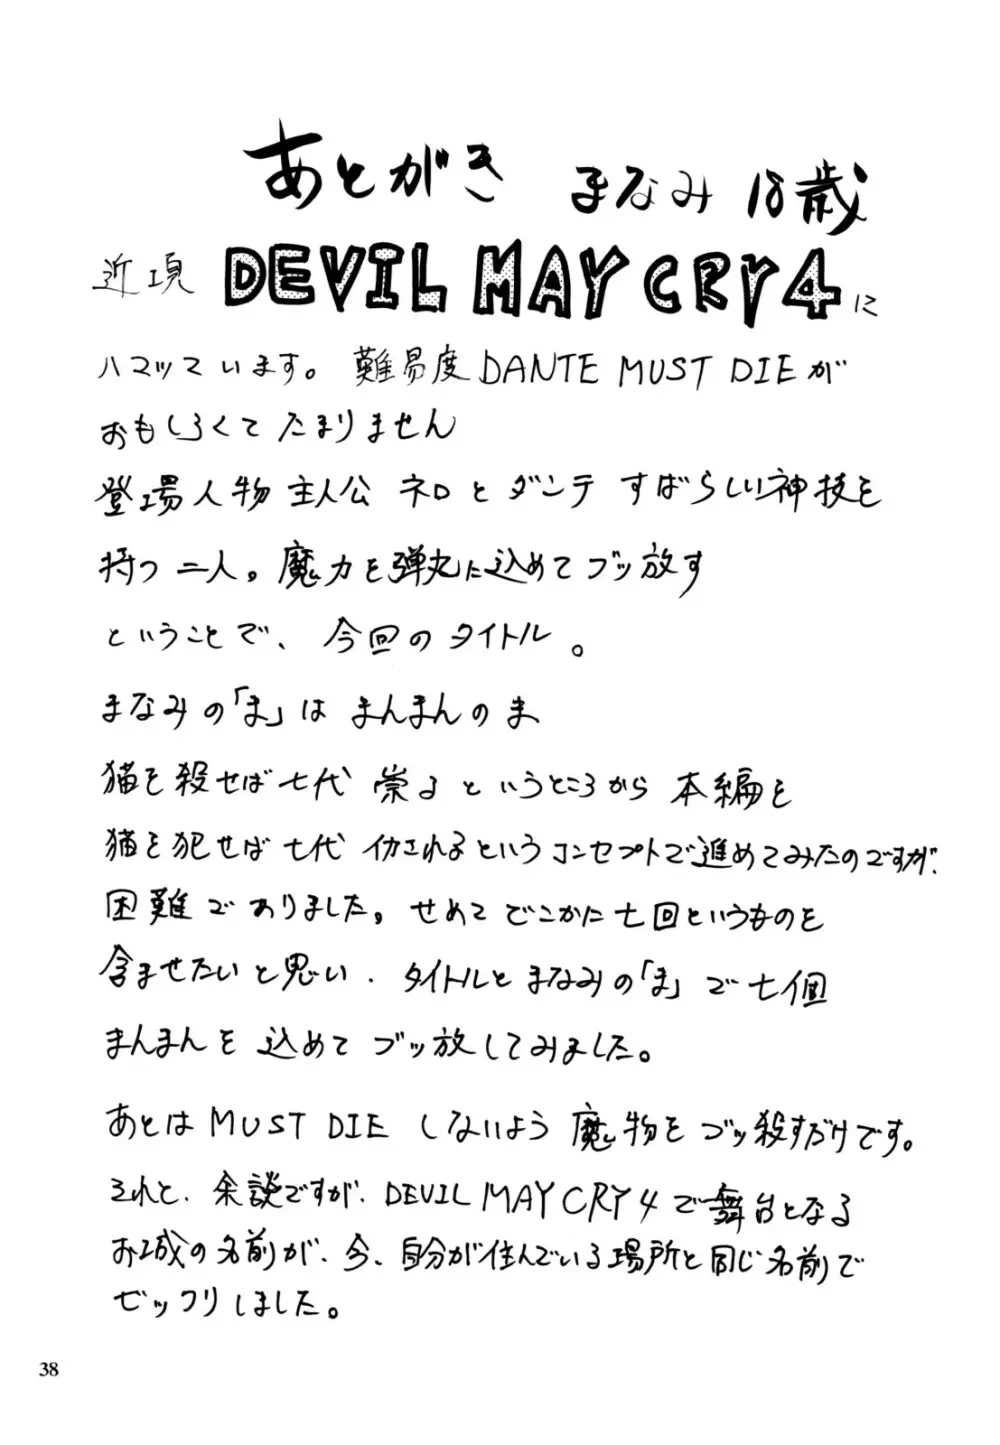 あとがき まなみ 18歳
近頃 DEVIL MAY CRY 4 に
ハマッています。難易度DANTE MUST DIEが
おもしろくてたまりません
登場人物主人公 ネロとダンテ すばらしい神技を
持つ二人。魔力を弾丸に込めてブッ放す
ということで、今回のタイトル。
まなみの「ま」は まんまんのま
猫を殺せば七代 祟る というところから 本編を
猫を犯せば七代 イカされるというコンセプトで進めてみたのですが、
困難でありました。せめてどこかに七回というものを
含ませたいと思い、タイトルとまなみの「ま」で七個
まんまんを込めてブッ放してみました。
あとはMUST DIE しないよう魔物をブッ殺すだけです。
それと、余談ですが、DEVIL MAY CRY 4で舞台となる
お城の名前が、今、自分が住んでいる場所と同じ名前で
ビックリしました。
38